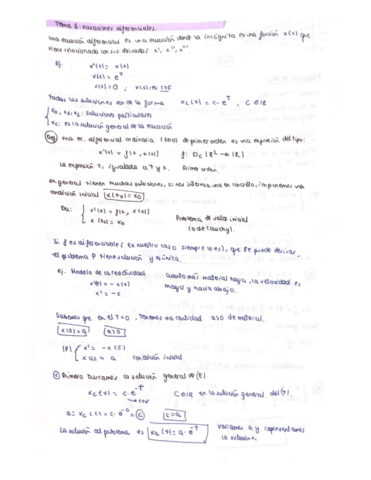 Tema 6: Ecuaciones diferenciales.
Una ecuación diferencial es una ecuación donde la incógnita es una función x(t) que
viene relacionada con sus derivadas x', x'', x'''
Ej.
x'(t) = x(t)
x(t) = e^t
x(t) = 0,
Todas las soluciones son de la forma x_c(t) = c · e^t, C ∈ IR
soluciones particulares
x_c: es la solución general de la ecuación
una ec. diferencial ordinaria (EDO) de primer orden es una expresión del tipo:
x'(t) = f(t, x(t)) f: D ⊂ IR² → IR
Primer orden.
en general tienen muchas soluciones, si nos interesa una en concreto, imponemos una
condición inicial x(t₀) = x₀
x'(t) = f(t, x(t))
x(t₀) = x₀
Problema de valor inicial
(o de Cauchy).
Si f es diferenciable (en nuestro caso siempre lo es), que se puede derivar,
el problema P tiene solución y es única.
Ej. Modelo de la reactividad
cuanto más material haya, la velocidad es
mayor y hacia abajo.
x'(t) = - x(t)
x' = -x
Sabemos que en el t=0, tenemos una cantidad a>0 de material.
x(0) = a a>0
(P) { x' = - x (E)
x(0) = a condición inicial
① Primero buscamos la solución general de (E)
x_c(t) = c · e^-t C ∈ IR es la solución general de
a = x_c(0) = c · e^-0 = c c = a
La solución al problema es x_a(t) = a · e^-t
variamos a y representamos
la solución.